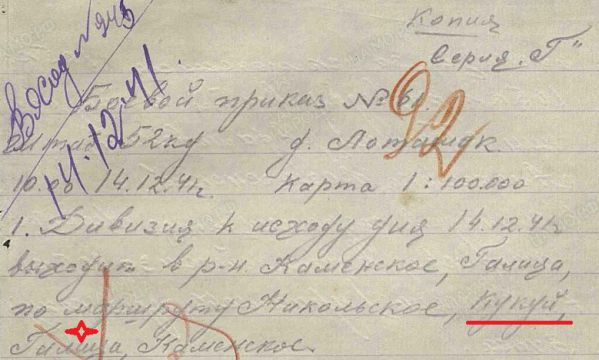 Копия
Верно „Г"
Вход №943
14.12.41.
92
Боевой приказ №
Штаб 52кд д.
14.12.41г. Карта 1:100.000
1. Дивизия к исходу дня 14.12.41г
выходит в р-н Каменское, Галица,
по маршруту Никольское, Кукуй,
Галица, Каменское.